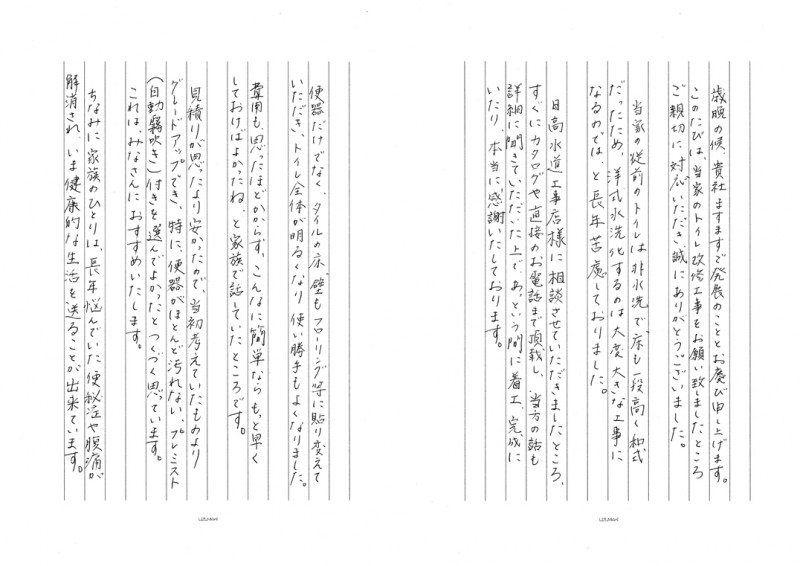 歳晩の候、貴社ますますご発展のこととお慶び申し上げます。
このたびは、当家のトイレ改修工事をお願い致しましたところ
ご親切に対応いただき誠にありがとうございました。
当家の従前のトイレは非水洗で、床も一段高く和式
だったため、洋式水洗化するのは大変大きな工事に
なるのでは、と長年苦慮しておりました。
日高水道工事店様に相談させていただきましたところ、
すぐにカタログや直接のお電話まで頂戴し、当方の話も
詳細に聞きていただいた上で、あっという間に着工、完成に
いたり、本当に感謝いたしております。
便器だけでなく、タイルの床、壁もフローリング等に貼り変えて
いただき、トイレ全体が明るくなり使い勝手もよくなりました。
費用も、思ったほどかからず、こんなに簡単ならもっと早く
しておけばよかったね、と家族で話していたところです。
見積りが思ったより安かったので、当初考えていたものより
グレードアップでき、特に、便器がほとんど汚れない、プレミスト
(自動霧吹き)付きを選んでよかったとつくづく思っています。
これは、みなさんにおすすめいたします。
ちなみに家族のひとりは、長年悩んでいた便秘症や腹痛が
解消され、いま健康的な生活を送ることが出来ています。